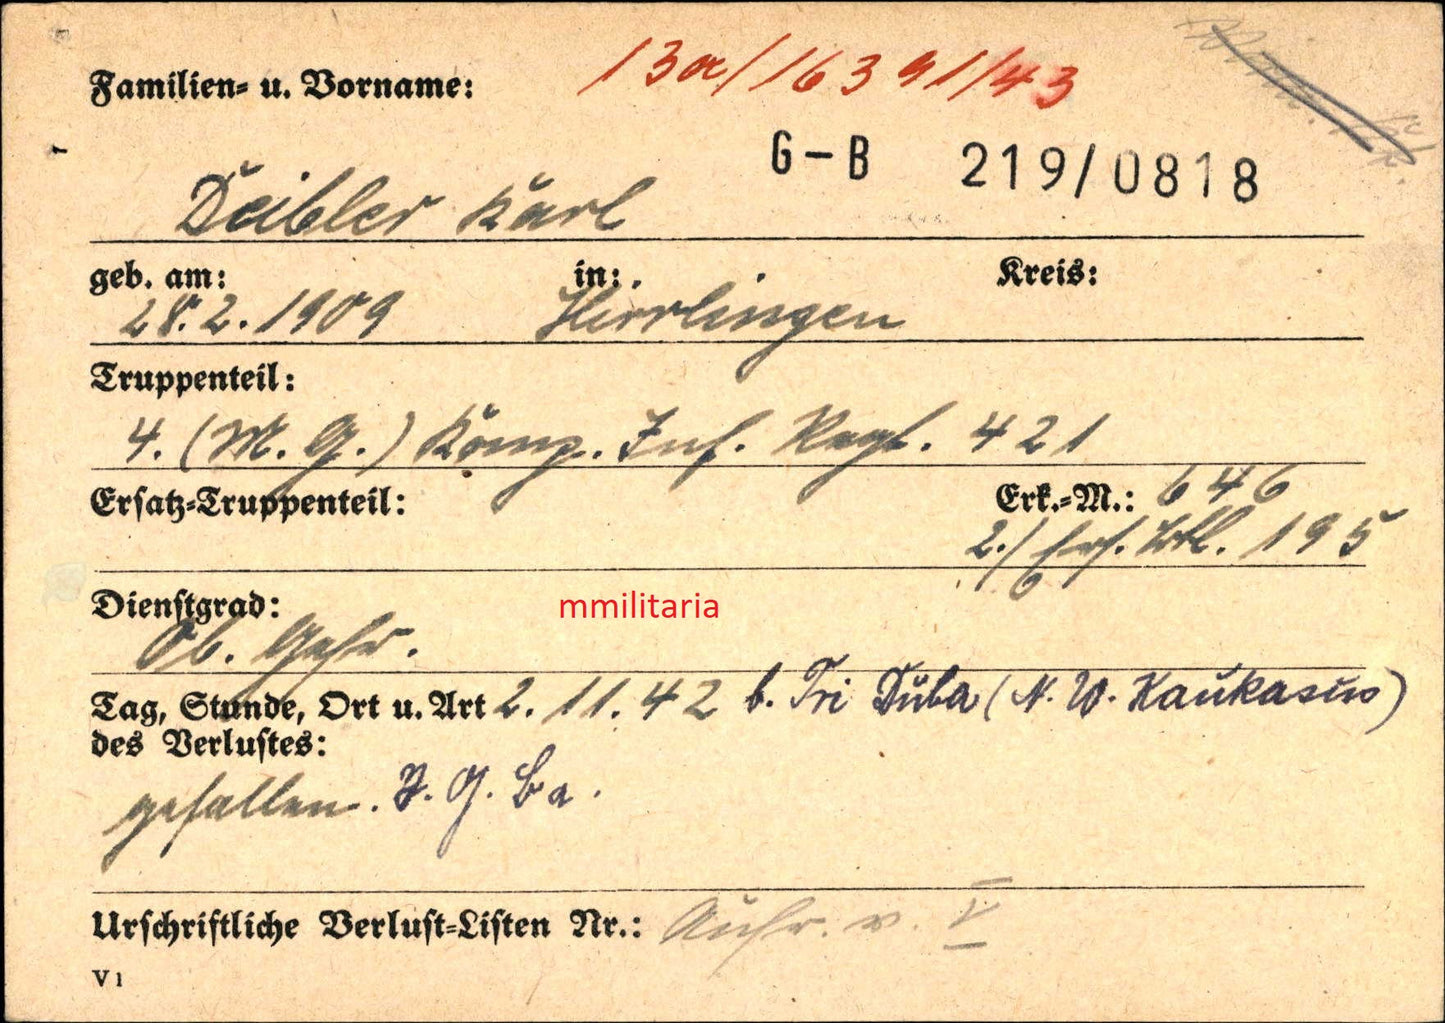 Familien- u. Vorname: 13a/16391/43
G-B 219/0818
Deibler Karl
geb. am: in: Kreis:
28.2.1909 Hirrlingen
Truppenteil:
4. (M.G.) Komp. Inf. Regt. 421
Ersatz-Truppenteil: Erk.-M.: 646
2./ 195
Dienstgrad: mmilitaria
Ob. Gefr.
Tag, Stunde, Ort u. Art 2. 11. 42 b. Tri Duba (N. W. Kaukasus)
des Verlustes:
gefallen. J. G. Ba.
Urschriftliche Verlust-Listen Nr.: v. V
V1